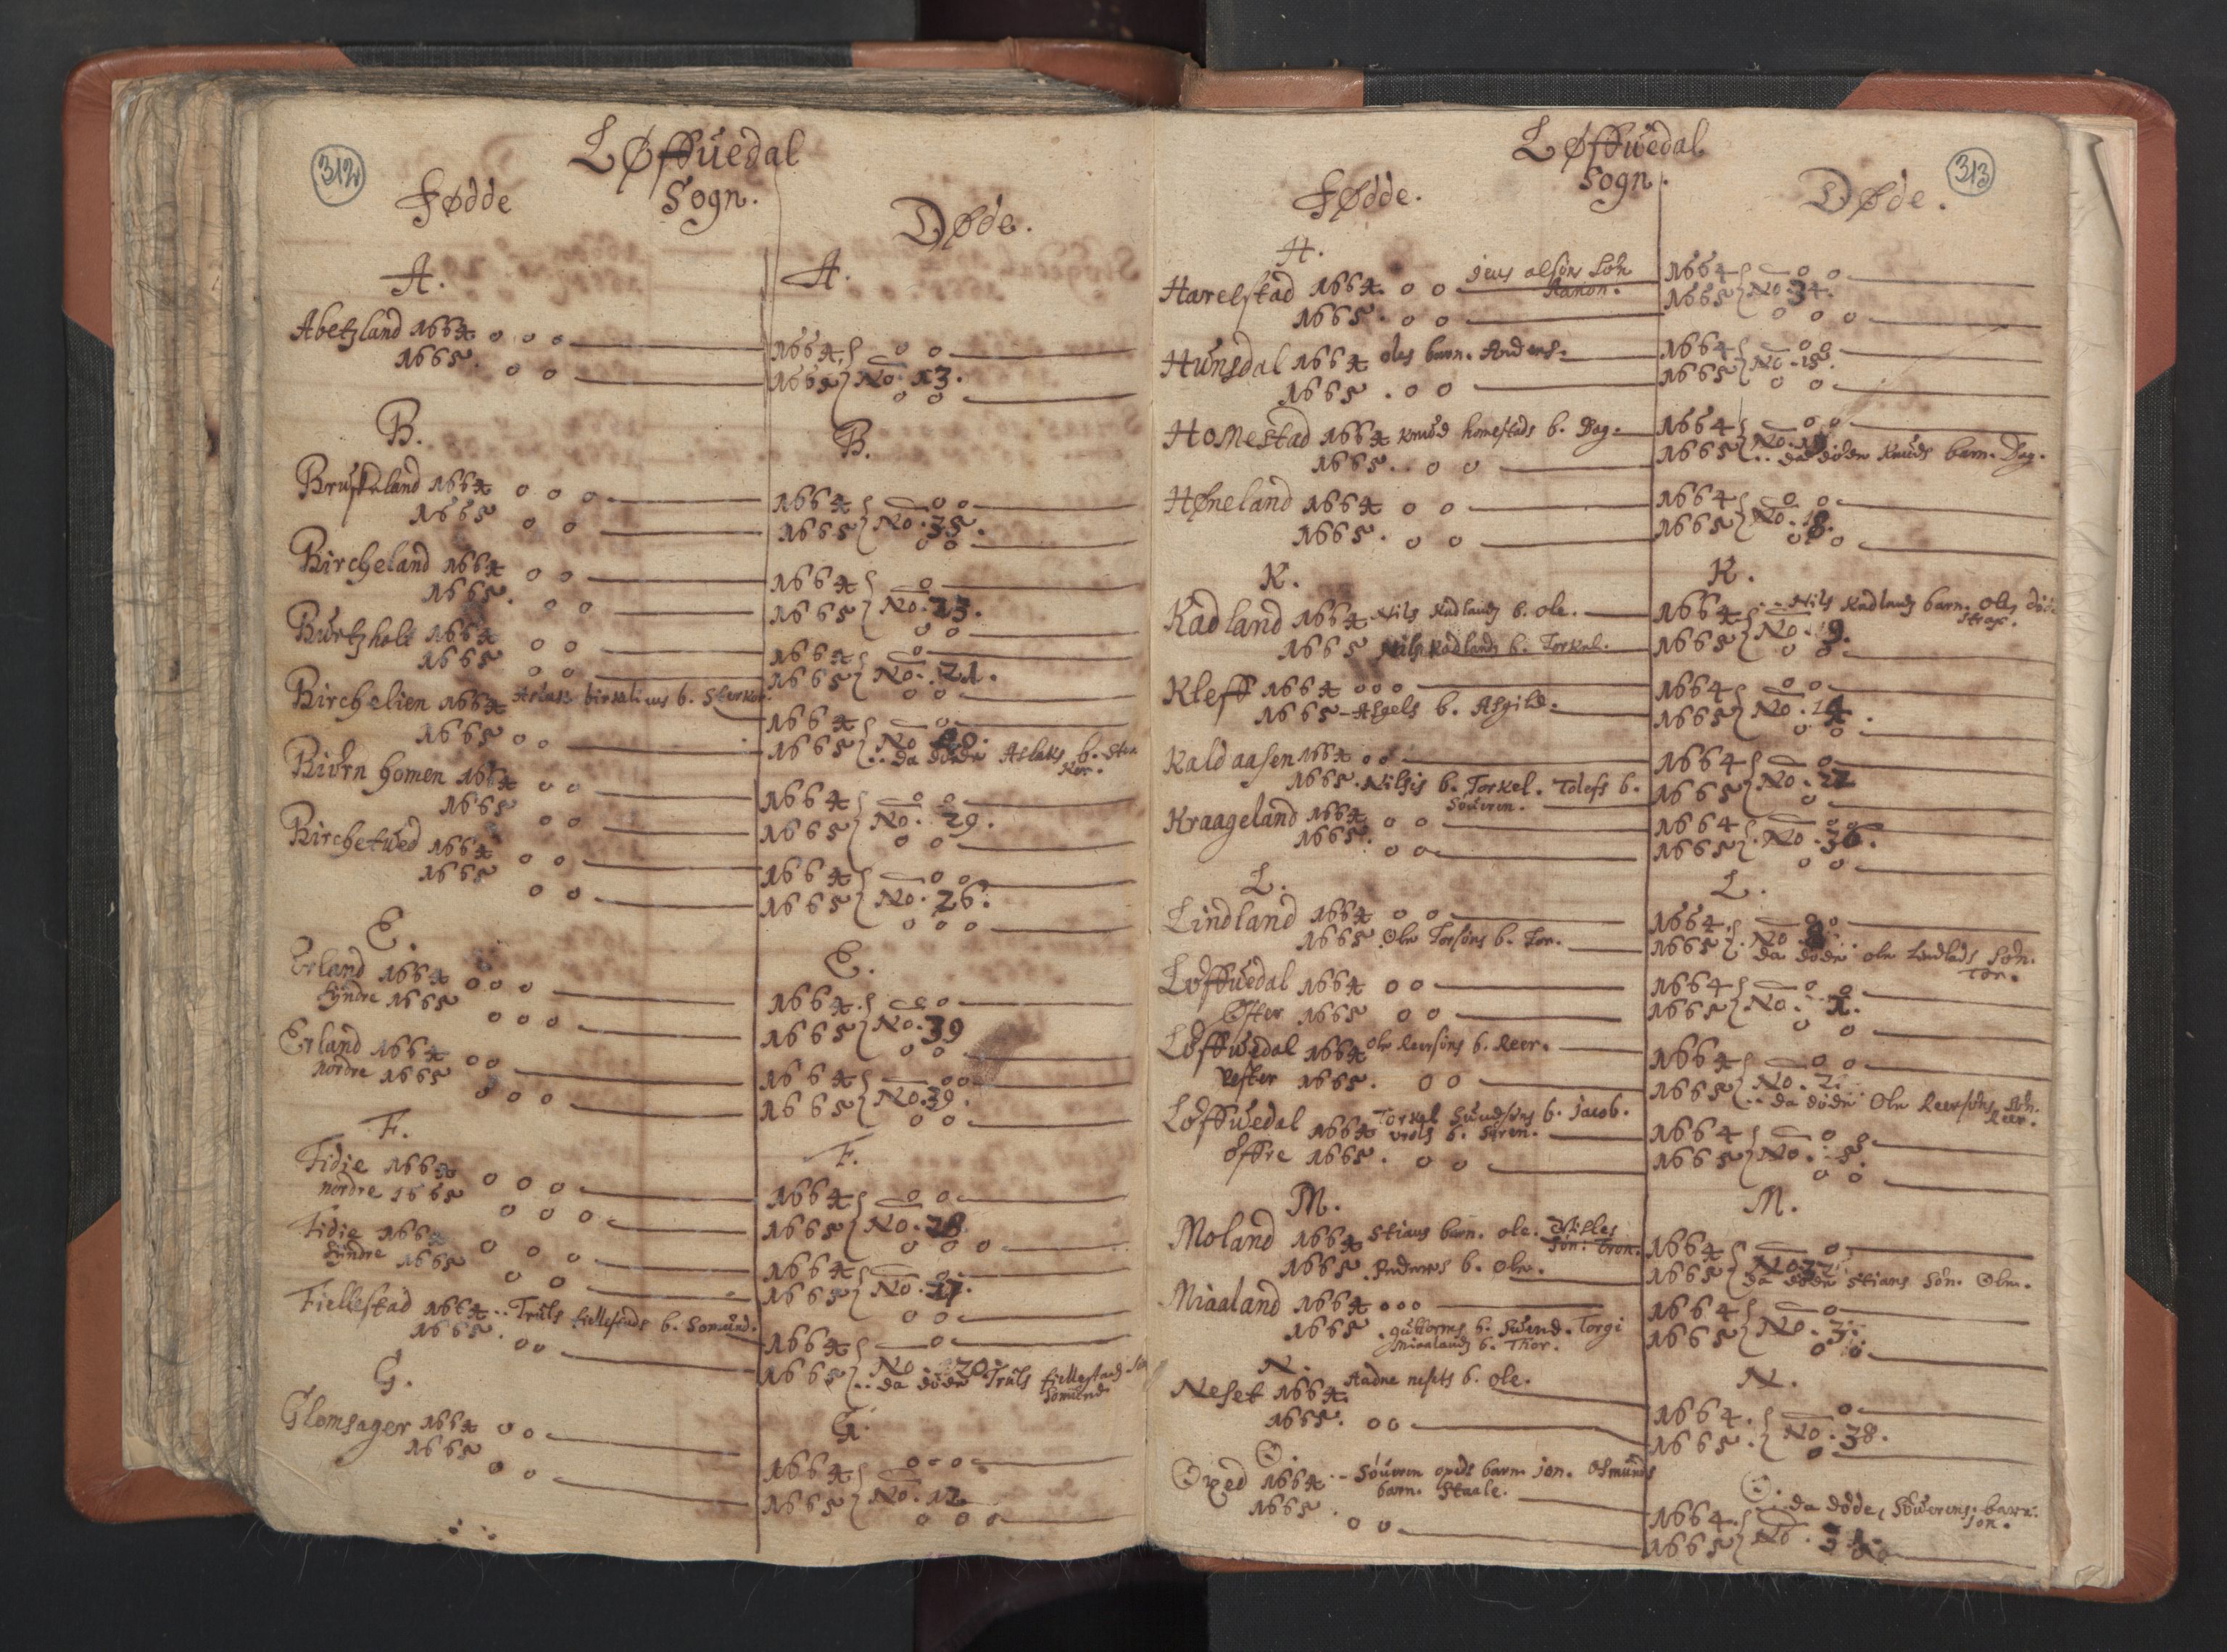 312
Løffuedal
Sogn.
Fødde
Døde.
A.
Abetzland 1664 o o o
1665. o o
B.
Bruskeland 1664 o o o
1665 o o
Bircheland 1664 o o
1665. o o
Burtzholt 1664 o o
1665 o o
Birchelien 1664 b.
1665 o o
Biörn homen 1664 o o
1665 o o
Birchetued 1664 o o
1665 o o
E.
Erland 1664 o o o
Syndre 1665 o o o
Erland 1664 o o
nordre 1665 o o o
F.
Fidie 1664 o o o
nordre 1665 o o o
Fidie 1664 o o o
Syndre 1665 o o
Fiellestad 1664 .. Truls fiellestads b. Somund.
1665. o o
G.
Glomsager 1664 o o
1665 o o
A.
1664. o o
1665 No. 13.
o o
B.
1664 o o
1665 No. 35.
o o
1664 o
1665 No. 23.
o o
1664 o
1665 No. 21.
o o
1664 o
1665 No
.. da döde Aslaks b.
1664 o o
1665 No. 29.
o o
1664 o o
1665 No. 26.
o o o
E.
1664. o o
1665 No. 39
o o
1664 o o
1665 No. 39.
o o
F.
1664 o o
1665 No. 28.
o o o
1664 o
1665 No. 27.
o o
1664 o
1665 No. 20
.. da döde Truls fiellestads
Somund
G.
1664 o o o
1665 No. 12
o o o
313
Løffuedal
Sogn.
Fødde.
Døde.
H.
Harelstad 1664. o o jens olsöns Sön
1665. o o
Hunsdal 1664 oles barn. Anders.
1665. o o
Homestad 1664 Knud homestads b. Dag.
1665. . o o
Høneland 1664 o o
1665. o o
K.
Kadland 1664 Nils Kadlands b. ole.
1665 Nils Kadlands b. Torkel.
Kleff 1664 o o o
1665 - Asgels b. Asgild.
Kaldaasen 1664 o o
1665. Nilsis b. Torkel. Tolefs b.
Söueren.
Kraageland 1664 o o
1665. o o
L.
Lindland 1664 o o
1665 Ole Torsöns b. Tor.
Löffuedal 1664 o o
Öster 1665 o o
Löffuedal 1664 ole Reersöns b. Reer.
Vester 1665. o o
Löffuedal 1664 Torkel Suendsöns b. jacob.
b. Sören.
öffre 1665. o o
M.
Moland 1664 Stians barn. ole.
Sön. Tron.
1665. Peders b. Ole.
Miaaland 1664 o o o
1665. guttorms b. Suend. Torgi
Miaalands b. Thor.
N.
Neset 1664. Aadne nesets b. ole.
1665. o o
O.
Oped 1664 - Söueren opeds barn jon. Osmunds
barn. Staale.
1665. o o
1664 o o
1665 No. 34.
o o o
1664 o o
1665 No. 15.
o o
1664 o o
1665 No.
.. da döde Knuds barn. Dag.
1664 o o
1665 No. 18.
o o
K.
1664 .. Nils Kadlands barn. Ole döde
strax.
1665 No. 9.
o o
1664 o o
1665 No. 14.
o o
1664 o
1665 No. 22
o
1664 o o
1665 No. 36.
o o
L.
1664. o o
1665 No.
da döde ole Lindlads Sön.
Tor.
1664 o o
1665 No. 1.
o o
1664 o o
1665 No. 2.
.. da döde Ole Reersöns Sön.
Reer.
1664 o o
1665 No. 5.
o o
M.
1664 o
1665 No 37
da döde Stians Sön. Ole.
1664 o
1665 No. 3.
o o
N.
1664. o
1665. No. 38.
o
O.
.. da döde Söuerens barn.
jon.
1664.
1665 No. 31.